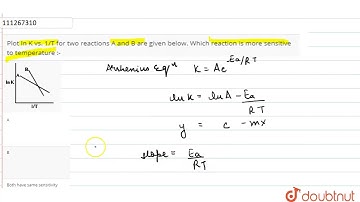 111267310
Plot ln K vs. 1/T for two reactions A and B are given below. Which reaction is more sensitive
to temperature :-
ln K
A
B
1/T
A
B
Both have same sensitivity
Arrhenius Eqⁿ K = Ae^-Ea/RT
ln K = ln A - Ea/RT
y = c - mx
slope = Ea/RT
doubtnut